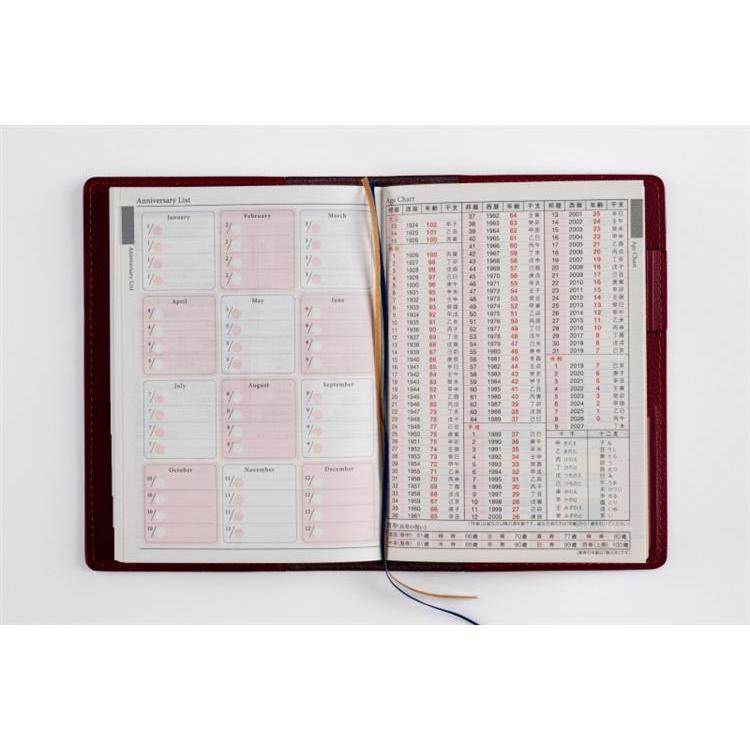 Anniversary List
January
February
March
1/
1/
1/
1/
2/
2/
2/
2/
3/
3/
3/
3/
April
May
June
4/
4/
4/
4/
5/
5/
5/
5/
6/
6/
6/
6/
July
August
September
7/
7/
7/
7/
8/
8/
8/
8/
9/
9/
9/
9/
October
November
December
10/
10/
10/
10/
11/
11/
11/
11/
12/
12/
12/
12/
Anniversary List
Age Chart
邦暦 西暦 年齢 干支
大正
13 1924 102 甲子
14 1925 101 乙丑
15 1926 100 丙寅
昭和
1 1926 100 丙寅
2 1927 99 丁卯
3 1928 98 戊辰
4 1929 97 己巳
5 1930 96 庚午
6 1931 95 辛未
7 1932 94 壬申
8 1933 93 癸酉
9 1934 92 甲戌
10 1935 91 乙亥
11 1936 90 丙子
12 1937 89 丁丑
13 1938 88 戊寅
14 1939 87 己卯
15 1940 86 庚辰
16 1941 85 辛巳
17 1942 84 壬午
18 1943 83 癸未
19 1944 82 甲申
20 1945 81 乙酉
21 1946 80 丙戌
22 1947 79 丁亥
23 1948 78 戊子
24 1949 77 己丑
25 1950 76 庚寅
26 1951 75 辛卯
27 1952 74 壬辰
28 1953 73 癸巳
29 1954 72 甲午
30 1955 71 乙未
31 1956 70 丙申
32 1957 69 丁酉
33 1958 68 戊戌
34 1959 67 己亥
35 1960 66 庚子
36 1961 65 辛丑
邦暦 西暦 年齢 干支
37 1962 64 壬寅
38 1963 63 癸卯
39 1964 62 甲辰
40 1965 61 乙巳
41 1966 60 丙午
42 1967 59 丁未
43 1968 58 戊申
44 1969 57 己酉
45 1970 56 庚戌
46 1971 55 辛亥
47 1972 54 壬子
48 1973 53 癸丑
49 1974 52 甲寅
50 1975 51 乙卯
51 1976 50 丙辰
52 1977 49 丁巳
53 1978 48 戊午
54 1979 47 己未
55 1980 46 庚申
56 1981 45 辛酉
57 1982 44 壬戌
58 1983 43 癸亥
59 1984 42 甲子
60 1985 41 乙丑
61 1986 40 丙寅
62 1987 39 丁卯
63 1988 38 戊辰
64 1989 37 己巳
平成
1 1989 37 己巳
2 1990 36 庚午
3 1991 35 辛未
4 1992 34 壬申
5 1993 33 癸酉
6 1994 32 甲戌
7 1995 31 乙亥
8 1996 30 丙子
9 1997 29 丁丑
10 1998 28 戊寅
11 1999 27 己卯
12 2000 26 庚辰
邦暦 西暦 年齢 干支
13 2001 25 辛巳
14 2002 24 壬午
15 2003 23 癸未
16 2004 22 甲申
17 2005 21 乙酉
18 2006 20 丙戌
19 2007 19 丁亥
20 2008 18 戊子
21 2009 17 己丑
22 2010 16 庚寅
23 2011 15 辛卯
24 2012 14 壬辰
25 2013 13 癸巳
26 2014 12 甲午
27 2015 11 乙未
28 2016 10 丙申
29 2017 9 丁酉
30 2018 8 戊戌
31 2019 7 己亥
令和
1 2019 7 己亥
2 2020 6 庚子
3 2021 5 辛丑
4 2022 4 壬寅
5 2023 3 癸卯
6 2024 2 甲辰
7 2025 1 乙巳
8 2026 0 丙午
9 2027 丁未
十干 十二支
甲 きのえ 子 ね
乙 きのと 丑 うし
丙 ひのえ 寅 とら
丁 ひのと 卯 う
戊 つちのえ 辰 たつ
己 つちのと 巳 み
庚 かのえ 午 うま
辛 かのと 未 ひつじ
壬 みずのえ 申 さる
癸 みずのと 酉 とり
戌 いぬ
亥 い
賀寿(長寿の祝い)
還暦(華甲) 61歳 緑寿 66歳 古稀 70歳 喜寿 77歳 傘寿 80歳
半寿(盤寿) 81歳 米寿 88歳 卒寿 90歳 白寿 99歳 百寿(上寿) 100歳
Age Chart